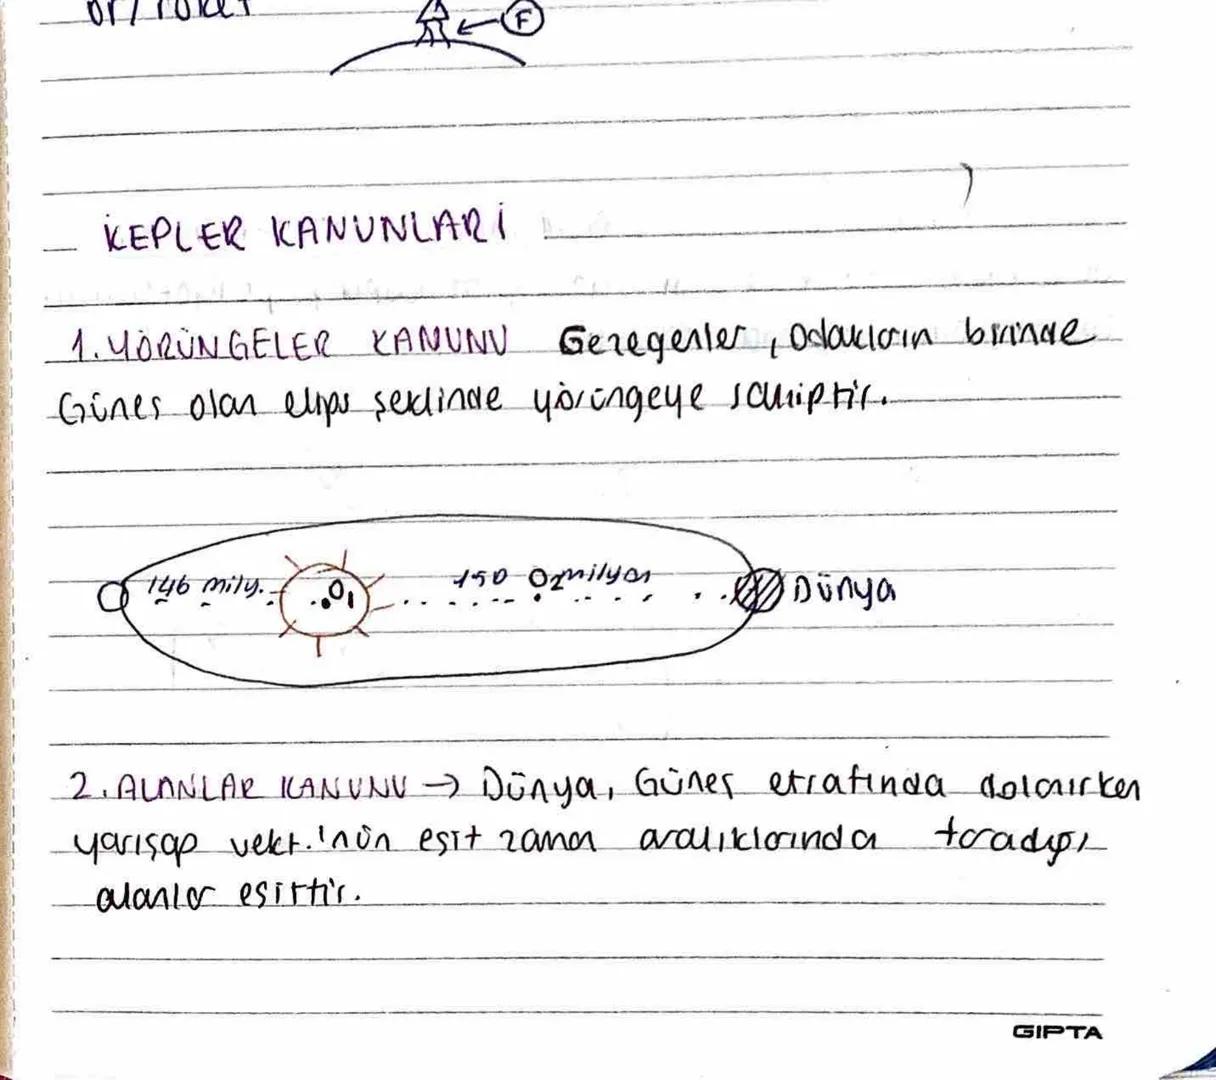 ör/ roket
F
KEPLER KANUNLARI
1. YÖRÜNGELER KANUNU Gezegenler, odakların birinde
Güneş olan elips şeklinde yörüngeye sahiptir.
146 mily. O1 150 O2 milyon Dünya
2. ALANLAR KANUNU → Dünya, Güneş etrafında dolanırken
yarıçap vekt.'nün eşit zaman aralıklarında taradığı
alanlar eşittir.
GIPTA